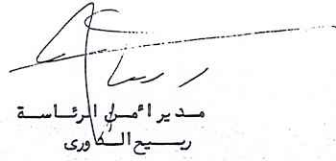 مدير أمن الرئاسة
ربيح الكاوري